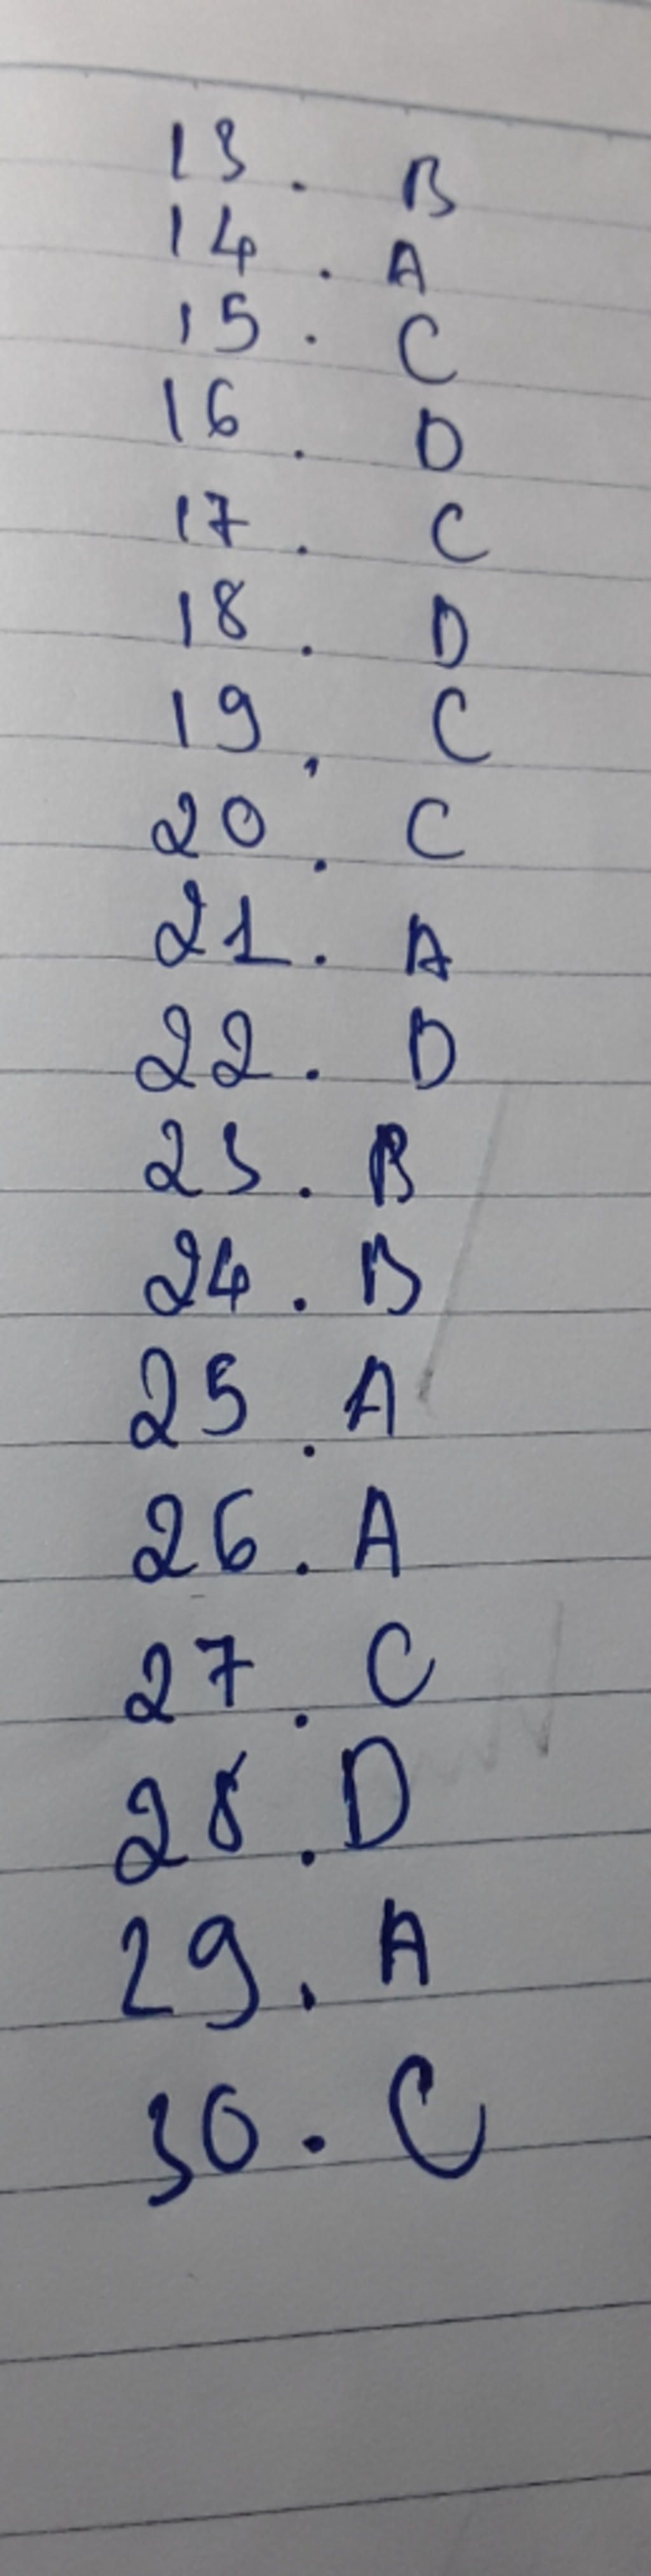 13. B
14. A
15. C
16. D
17. C
18. D
19. C
20. C
21. A
22. D
23. B
24. B
25. A
26. A
27. C
28. D
29. A
30. C